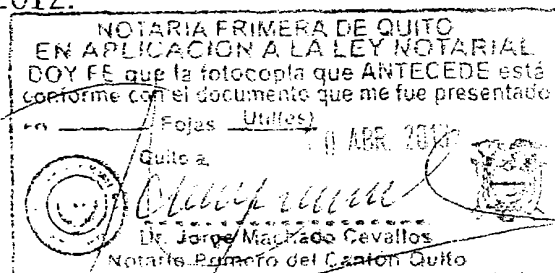 2012.
NOTARIA PRIMERA DE QUITO
EN APLICACION A LA LEY NOTARIAL
DOY FE que la fotocopia que ANTECEDE está
conforme con el documento que me fue presentado
en Fojas Utiles)
Quito a, ABR.
Dr. Jorge Machado Cevallos
Notario Primero del Cantón Quito